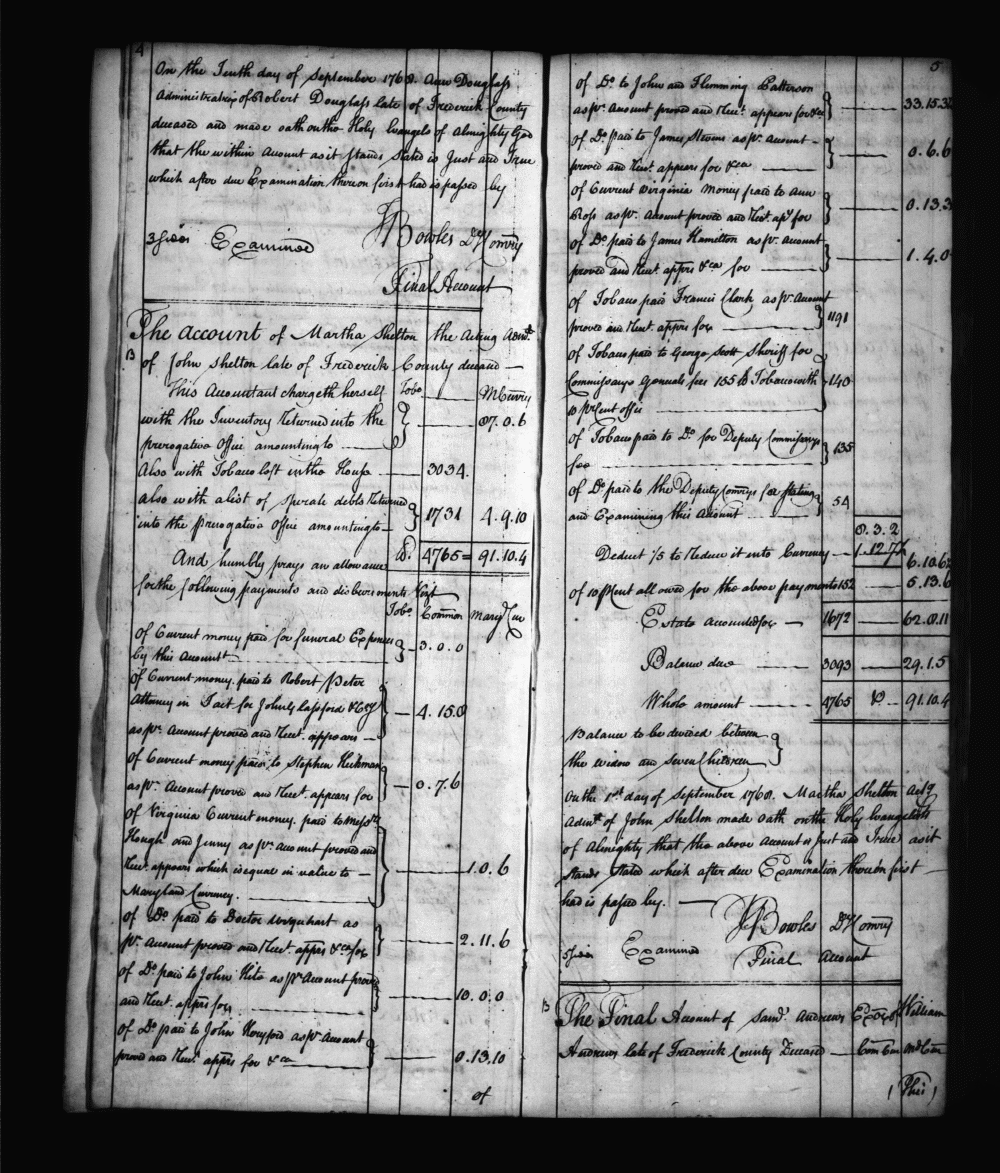 4
On the Tenth day of September 1768. Ann Douglass
Administratrix of Robert Douglass late of Frederick County
deceased and made oath on tho Holy Evangels of Almighty God
that the within Account as it stands stated is Just and True
which after due Examination thereon first had is passed by
Examined JBowles Dy Comry
Final Account
The account of Martha Shelton the Acting Admx.
B of John Shelton late of Frederick County deceasd —
This Accountant chargeth herself Tobo. M Curry
with the Inventory Returned into the 87.0.6
prerogative Office amounting to
Also with Tobacco left in tho House 3034.
also with a list of sperate debts Returned
into the prerogative Office amounting to 1731 4.9.10
And humbly prays an allowance 4765 = 91.10.4
for the following payments and disbursments Vizt
Tobo. Common Mary Cur
of Current money paid for funeral Expences
by this Accountt 3.0.0
of Current money paid to Robert Peter
Attorney in Fact for John Glassford & Coy
as pr. Account proved and Rect. appears — 4.15.0
of Current money paid to Stephen Hickman
as pr. Account proved and Rect. appears for 0.7.6
of Virginia Current money paid to Messrs
Hough and Jenny as pr. Account proved and
Rect. appears which is equal in value to — 1.0.6
Maryland Currency.
of Do. paid to Doctor Urquhart as
pr. Account proved and Rect. apprs &ca for 2.11.6
of Do. paid to John Hite as pr Account proved
and Rect. apprs for 10.0.0
of Do paid to John as pr Account
proved and Rect. apprs for &ca 0.13.10
of
5
of Do. to John and Flemming Patterson
as pr. Account proved and Rect. appears for &ca 33.15.3
of Do. paid to James Stevens as pr. Account —
proved and Rect. appears for &ca 0.6.6
of Current Virginia Money paid to Ann
Ross as pr. Account proved and Rect. aps for 0.13.3
of Do. paid to James Hamilton as pr. Account
proved and Rect. apprs &ca for 1.4.0
of Tobaco paid Francis Clark as pr. Account
proved and Rect. apprs for 1191
of Tobaco paid to George Scott Sheriff for
Commissarys Generals fees 155 lb Tobacco with 140
10 pr Cent offic
of Tobaco paid to Do. for Deputy Commissarys
fees 135
of Do. paid to the Deputy Comrys for stating
and Examining this Account 54
8.3.2
Deduct 1/5 to Reduce it into Currency — 1.12.7½
6.10.6½
of 10 pr Cent allowed for the above payments 152 5.13.6
Estate Accounted for — 1672 62.8.11
Balance due 3093 29.1.5
Whole amount 4765 91.10.4
Balance to be devided between
the widow and seven Children
On the 1st day of September 1768. Martha Shelton Actg
Admx. of John Shelton made Oath on the Holy Evangelists
of Almighty that the above Account is Just and True as it
stands stated which after due Examination thereon first
had is passed by. JBowles Dy Comry
Examined Final Account
B The Final Account of Saml. Andrews Exor of William
Andrews late of Frederick County Deceased — Com Cur
( This )